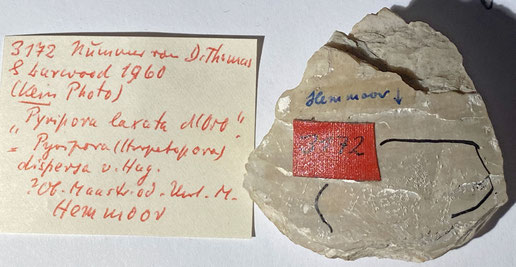 3172 Nummer von D. Thomas
& Larwood 1960
(kein Photo)
„Pyripora laxata
= Pyripora (Herpetopora)
dispersa v. Hag.
?Ob. Maastricd. - Unt. M.
Hemmoor
Hemmoor ↓
3172